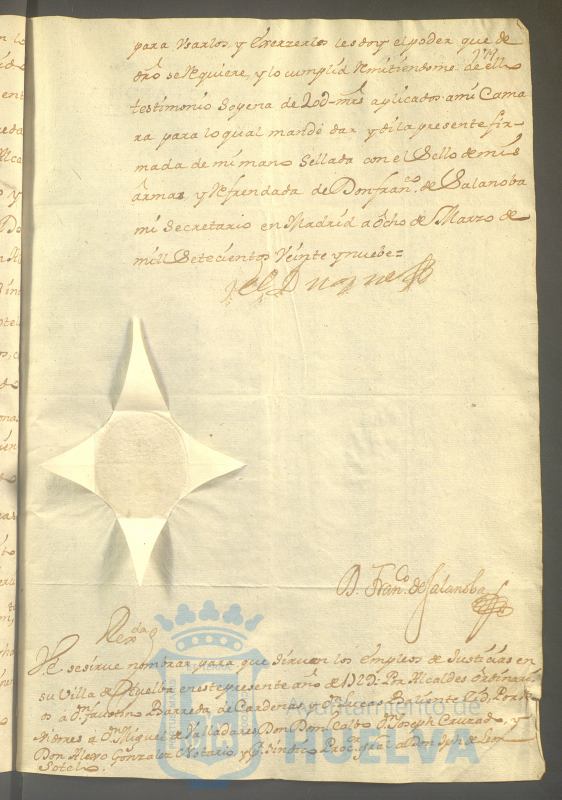 para Usarlos, y Exerzerlos les doy el poder que de
dro se requiere, y lo cumplid remitiendome de ello
testimonio so pena de 20d mrs aplicados a mi Cama
ra para lo qual mandé dar y di la presente fir-
mada de mi mano Sellada con el Sello de mis
armas y refrendada de Don Franco. de Salanoba
mi Secretario en Madrid a ôcho de Marzo de
mill Setecientos Veinte y nuebe =
el Duque
D. Franco. de Salanoba
Refda
V.E. se sirve nombrar para que sirvan los empleos de Justicias en
su Villa de Huelva en este presente año de 1729. Por Alcaldes Ordinari
os a Dn. Faustino Barreda de Cardenas y Dn.
a Dn. Miguel de Valladares Don Dn. Joseph Cruzado, y
Don Alexo Gonzalez Notario y Por Sindico Procor. gral a Don Jph de Leon
Sotelo.
Ayuntamiento de
HUELVA